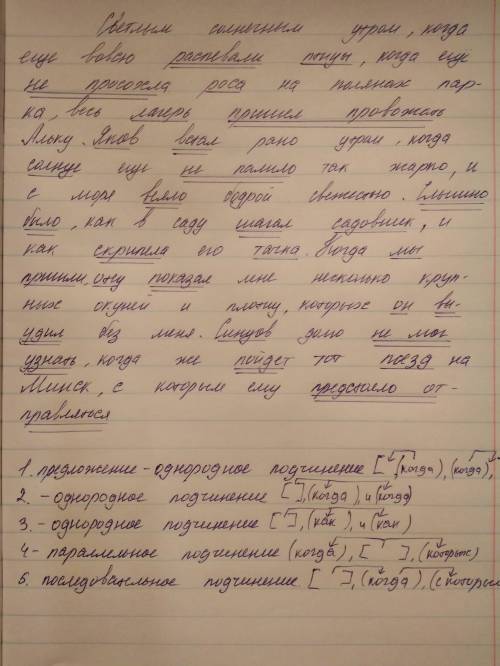 Светлым солнечным утром, когда
еще вовсю распевали птицы, когда ещё
не просохла роса на полянах пар-
ка, весь лагерь пришел провожать
Альку. Яков встал рано утром, когда
солнце еще не палило так жарко, и
с моря веяло бодрой свежестью. Слышно
было, как в саду шагал садовник, и
как скрипела его тачка. Когда мы
пришли, он показал мне несколько круп-
ных окуней и плотву, которых он вы-
удил без меня. Синцов долго не мог
узнать, когда же пойдет тот поезд на
Минск, с которым ему предстояло от-
правляться
1. предложение - однородное подчинение [ ,(когда), (когда),
2. - однородное подчинение [ ], (когда), и (когда)
3. - однородное подчинение [ ], (как), и (как)
4 - параллельное подчинение (когда), [ ], (которых)
5. последовательное подчинение. [ ], (когда), (с которым